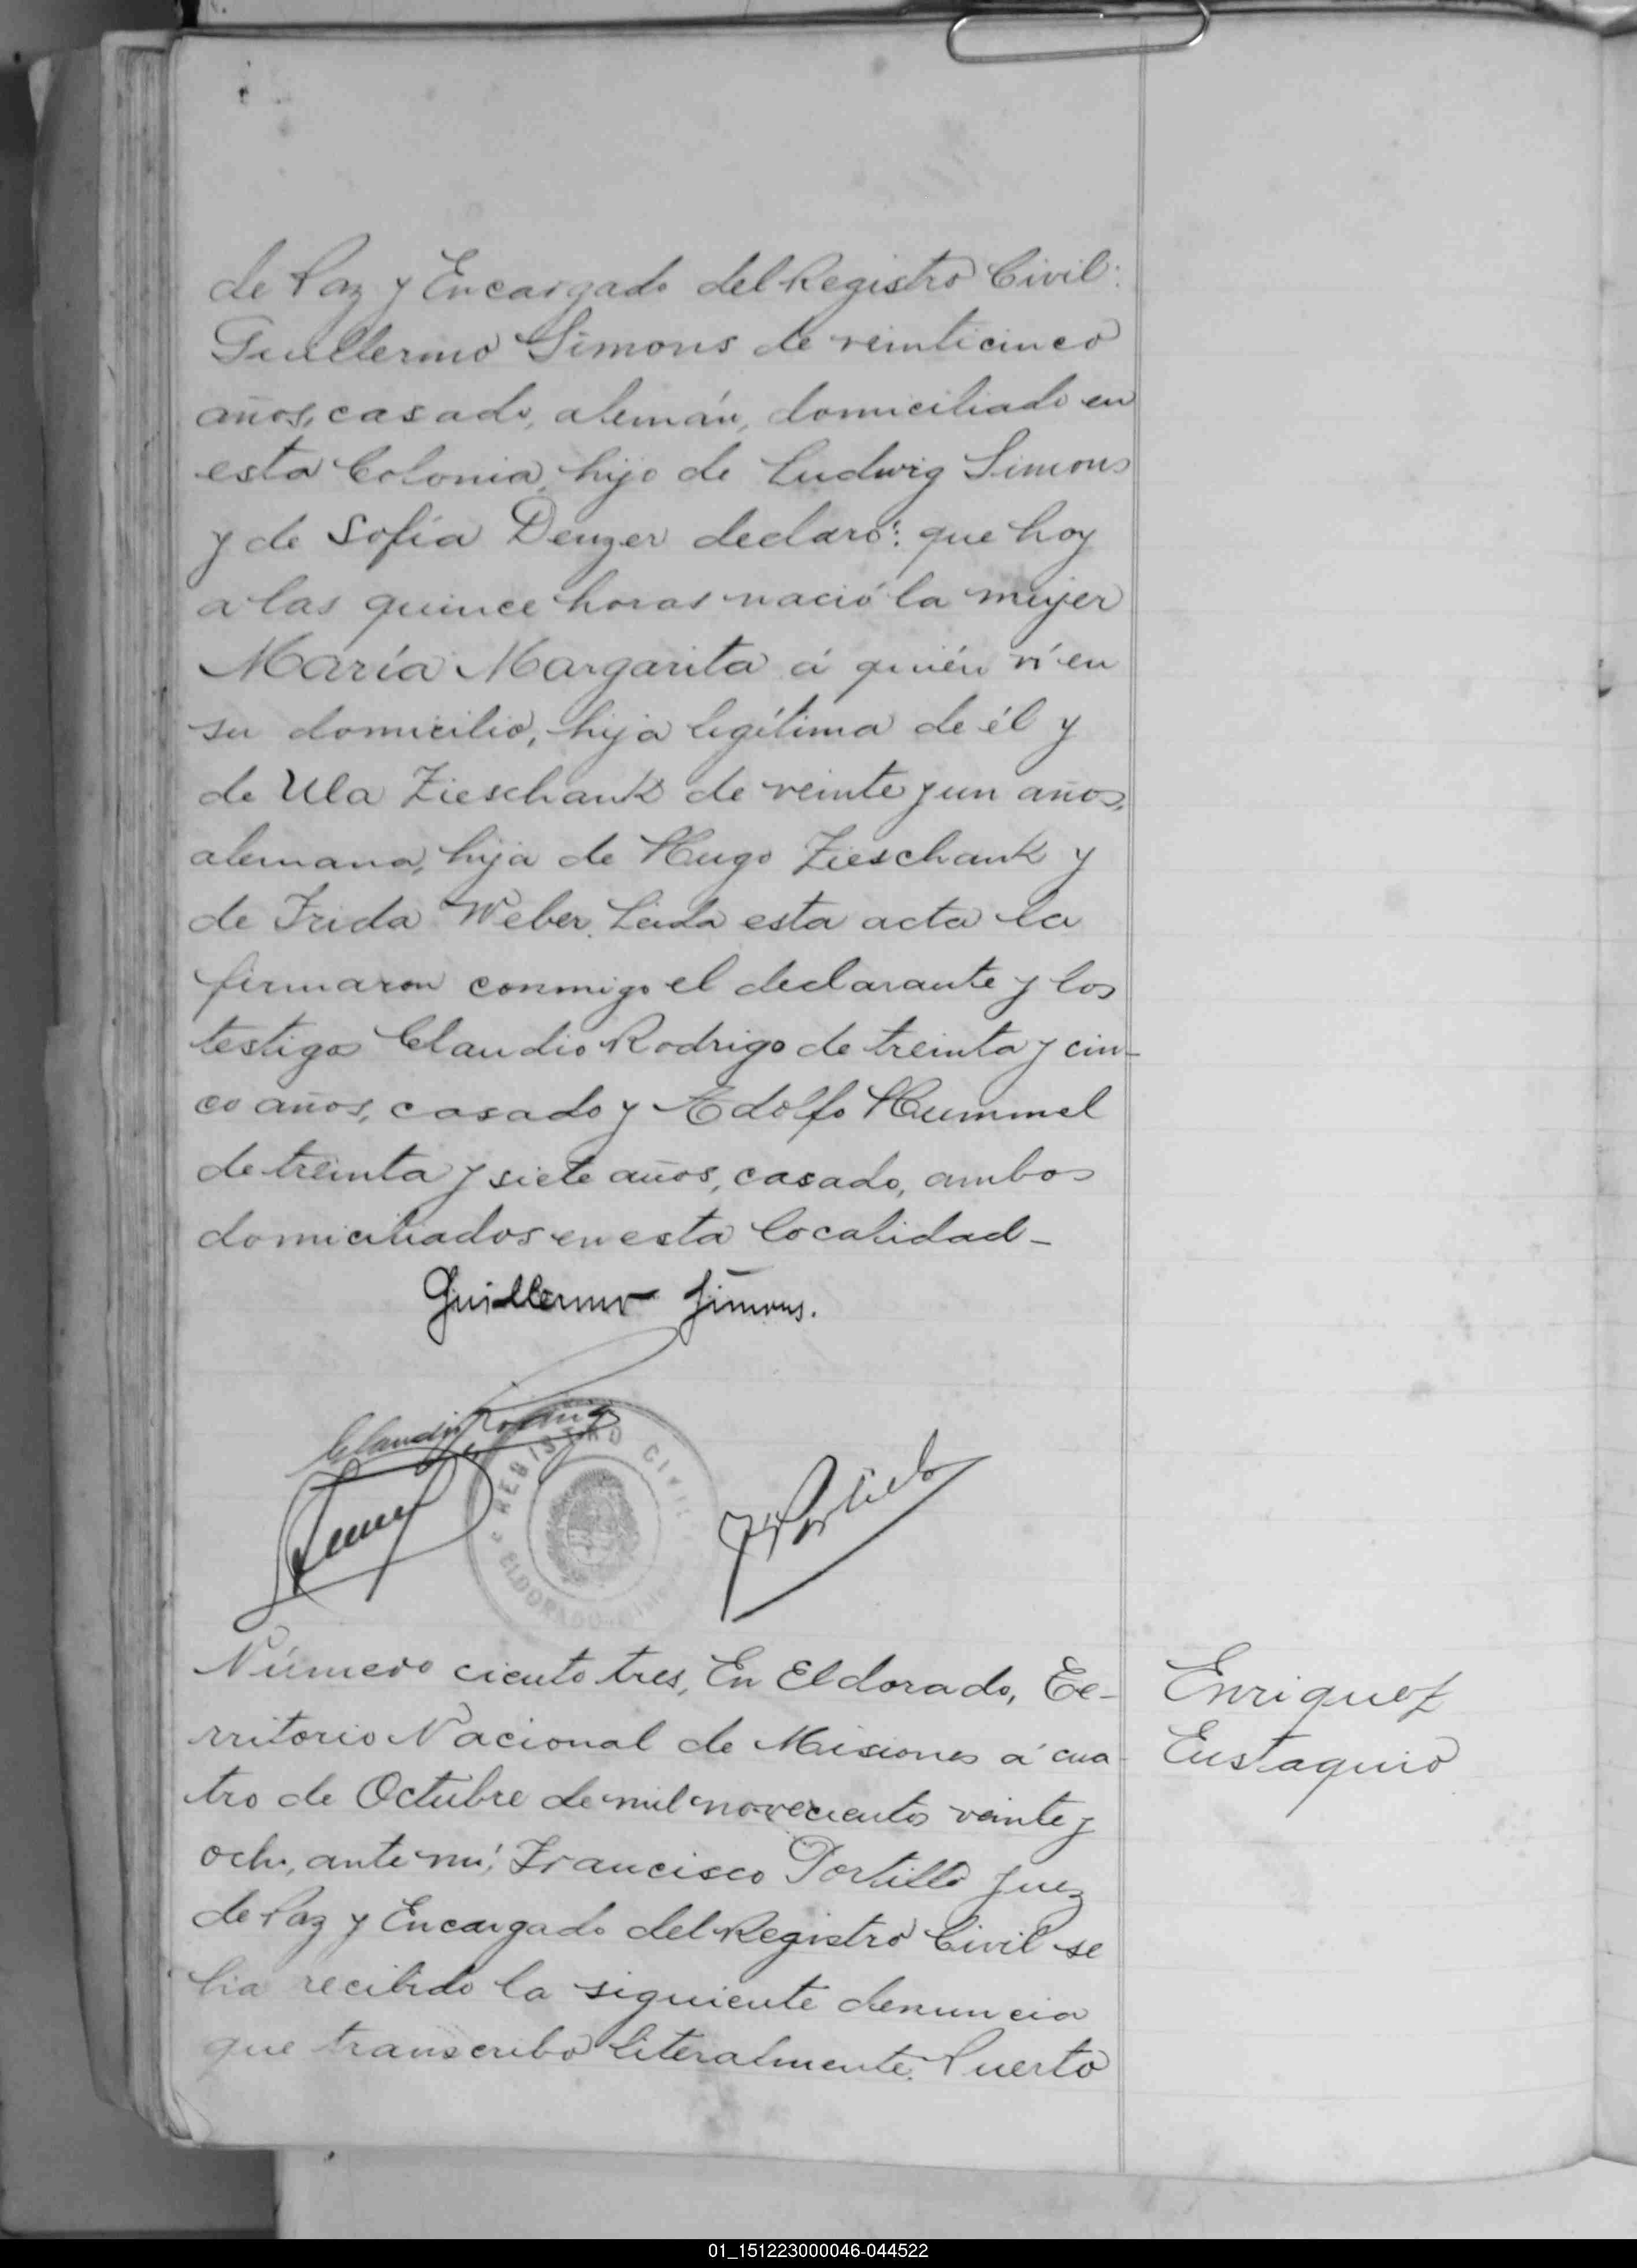 de Paz y Encargado del Registro Civil:
Guillermo Simons de veinticinco
años, casado, alemán, domiciliado en
esta Colonia, hijo de Ludwig Simons
y de Sofía Denzer declaró: que hoy
a las quince horas nació la mujer
María Margarita á quién ví en
su domicilio, hija legítima de él y
de Ula Zieschank de veinte y un años,
alemana, hija de Hugo Zieschank y
de Frida Weber. Leida esta acta la
firmaron conmigo el declarante y los
testigos Claudio Rodrigo de treinta y cin-
co años, casado y Adolfo Hummel
de treinta y siete años, casado, ambos
domiciliados en esta localidad-
Guillermo Simons.
Claudio Rodrigo
REGISTRO CIVIL
ELDORADO
F. Portillo
Número ciento tres, En Eldorado, Te-
rritorio Nacional de Misiones á cua-
tro de Octubre de mil novecientos veinte y
ocho, ante mí, Francisco Portillo Juez
de Paz y Encargado del Registro Civil se
ha recibido la siguiente denuncia
que transcribo literalmente. Puerto
Enriquez
Eustaquio
01_151223000046-044522